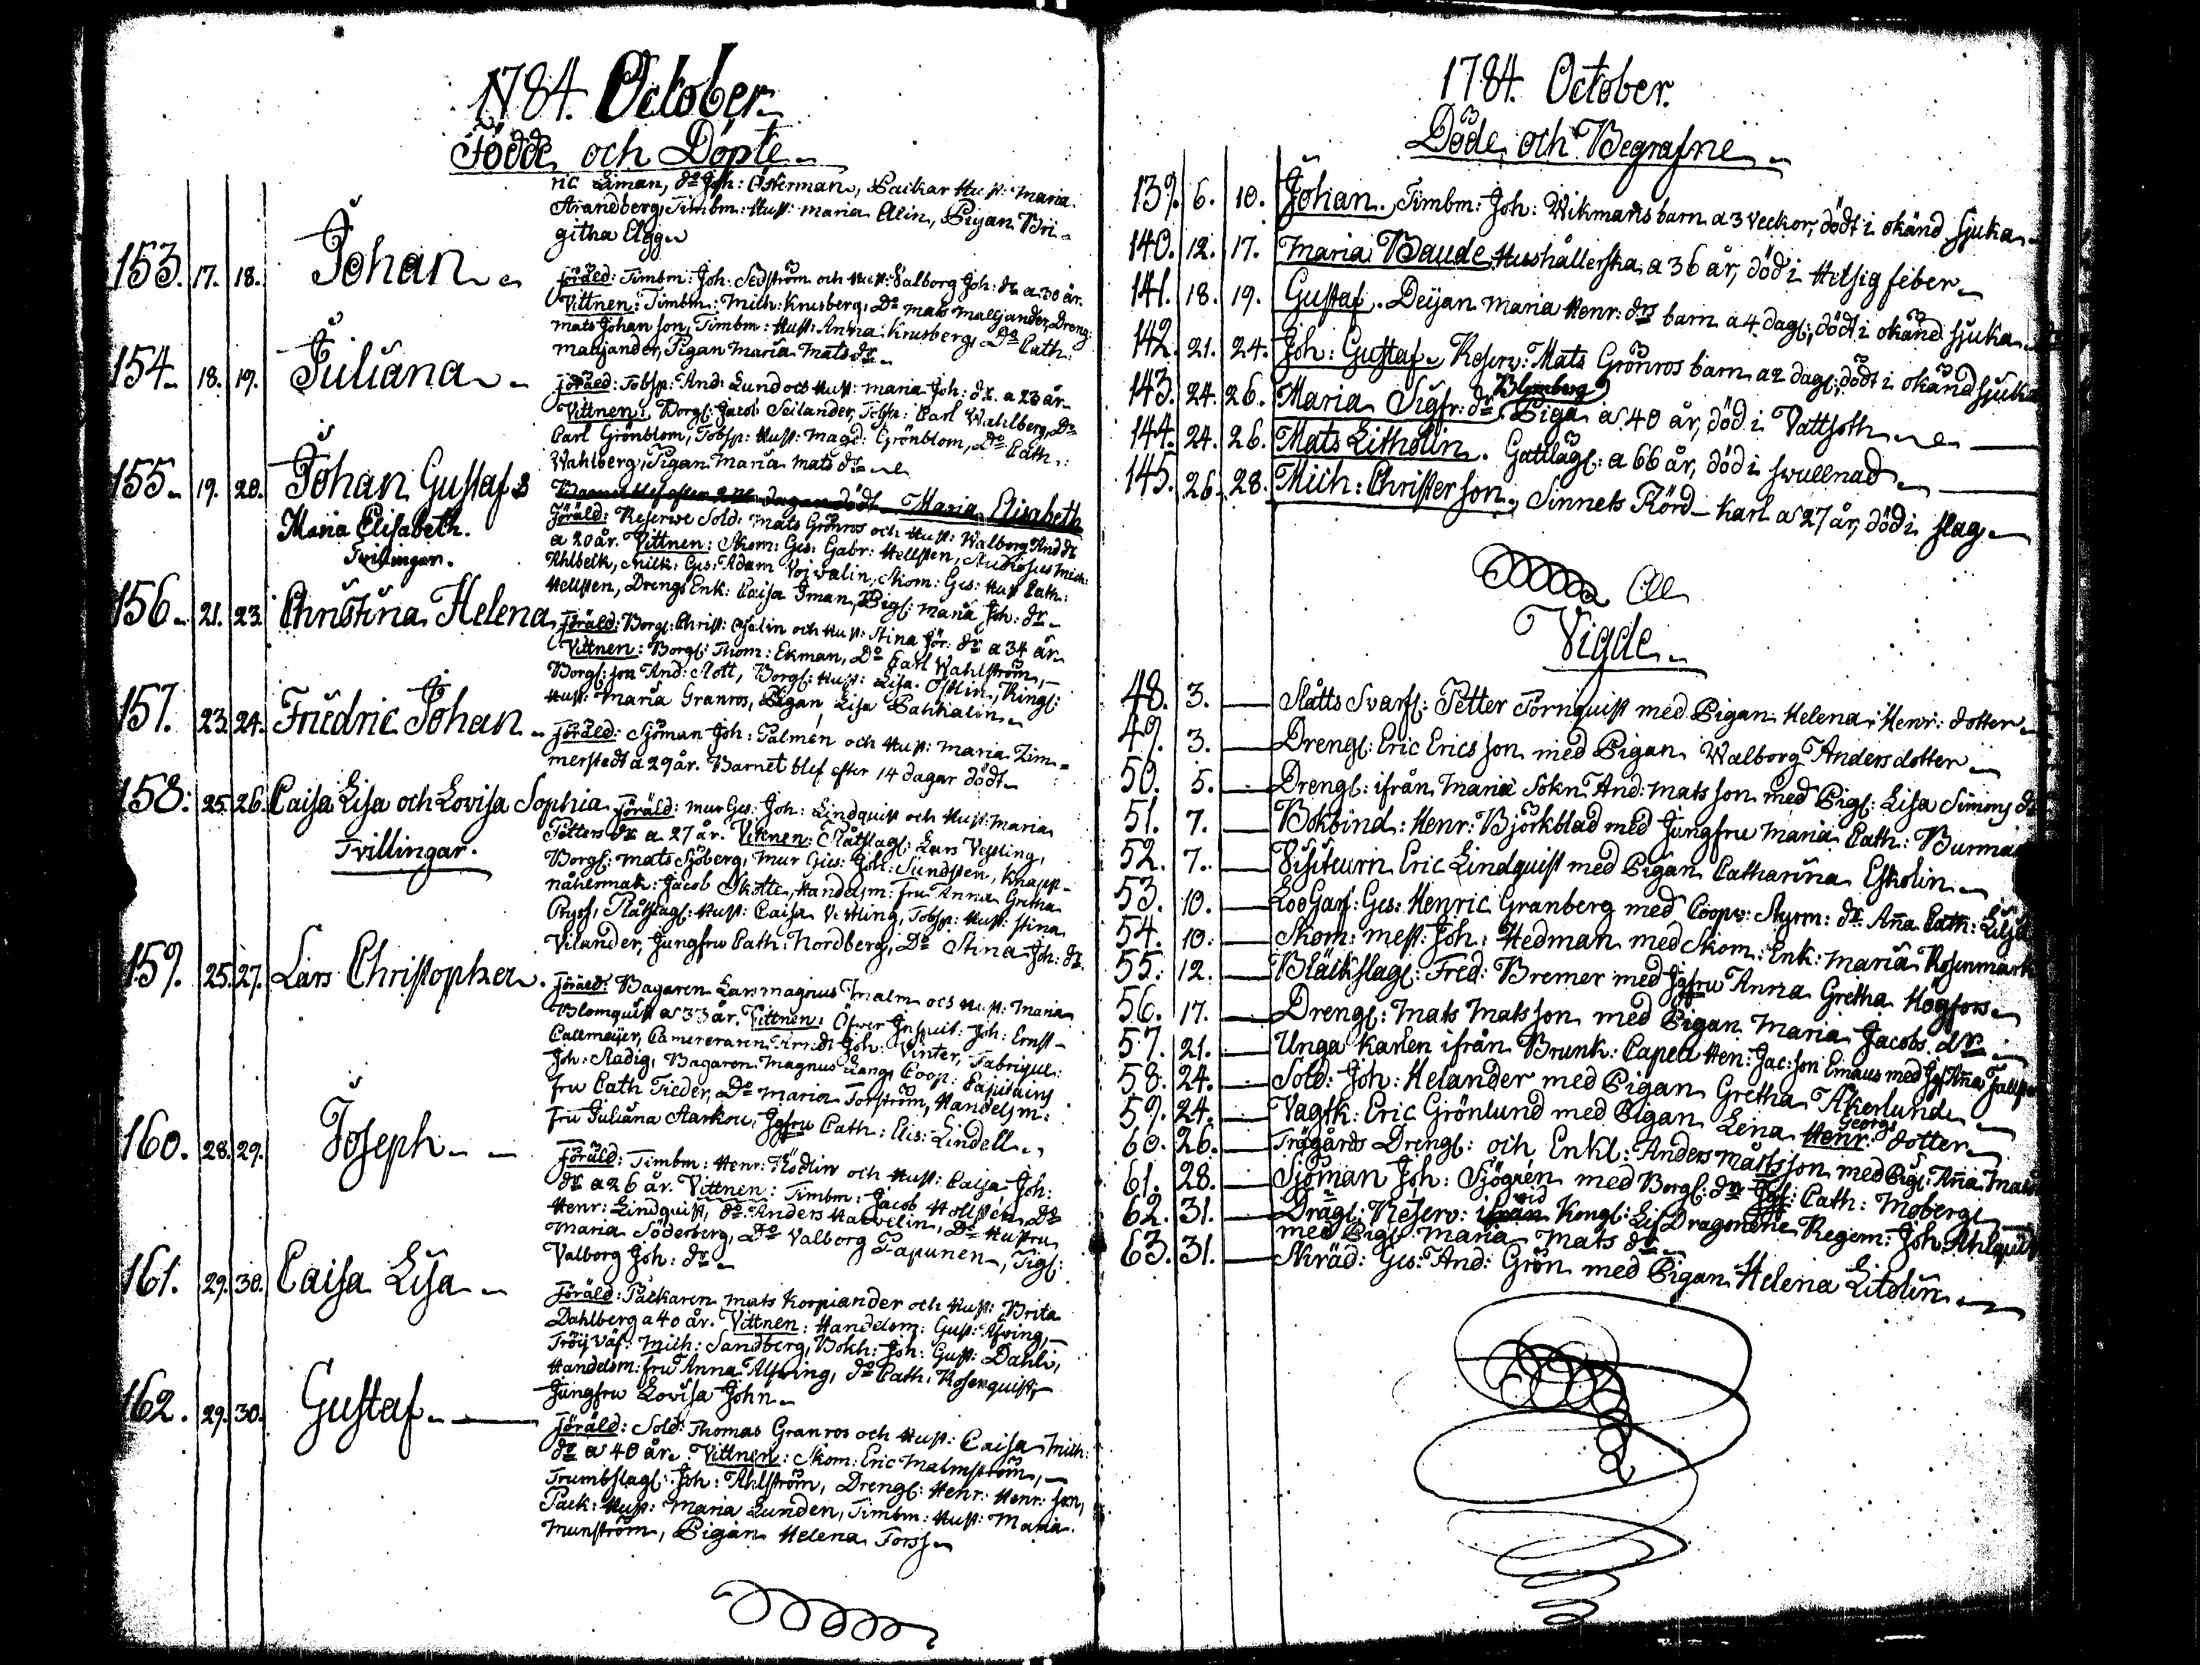 1784. October.
Födde och Döpte
ric Liman, do Joh: Österman, Backar Hust: Maria
Strandberg, Timbm: Hust: Maria Alin, Pigan Bri-
githa Elgg
153. 17. 18. Johan
Föräld: Timbm: Joh: Sedström och Hust: Valborg Joh: dr a 30 år.
Vittnen: Timbm: Mich: Krusberg, Do Mats Malljander, Dreng:
Mats Johan son, Timbm: Hust: Anna Krusberg, Do Cath:
Malljander, Pigan Maria Mats dr
154. 18. 19. Juliana
Föräld: Tobsp: And: Lund och Hust: Maria Joh: dr. a 23 år
Vittnen: Borgl: Jacob Seilander, Tobsp: Carl Wahlberg, Do
Carl Grönblom, Tobsp: Hust: Magd: Grönblom, Do Cath:
Wahlberg, Pigan Maria Mats dr
155. 19. 20. Johan Gustaf &
Maria Elisabeth.
Tvillingar.
Barnet blef efter 2 dagar dödt Maria Elisabeth
Föräld: Reserve Sold: Mats Grönros och Hust: Walborg And dr
a 20 år. Vittnen: Skom: Ges: Gabr: Hellsten, Studiosus Mich:
Ahlbeck, Ges: Adam Voivalin, Skom: Ges: Hust Cath:
Hellsten, Drengs Enk: Caisa Iman, Pigl: Maria Joh: dr
156. 21. 23. Christina Helena
Föräld: Borgl: Christ: Aselin och Hust: Stina Jör: dr a 34 år
Vittnen: Borgl: Thom: Ekman, Do Carl Wahlström,
Borgl: son And: Slott, Borgl: Hust: Lisa Östlin, Ringl:
Hust: Maria Granros, Pigan Lisa Pahkalin
157. 23. 24. Friedric Johan
Föräld: Sjöman Joh: Palmén och Hust: Maria Zim-
merstedt a 29 år. Barnet blef efter 14 dagar dödt
158. 25. 26. Caisa Lisa och Lovisa Sophia
Tvillingar.
Föräld: Mur Ges: Joh: Lindquist och Hust: Maria
Petters dr a 27 år. Vittnen: Slåttslagl: Lars Vestling,
Borgl: Mats Sjöberg, Mur Ges: Joh: Sundsten, Knapp-
nåhlsmak: Jacob Skotte, Handelsm: Fru Anna Gretha
Pryss, Slåttslagl: Hust: Caisa Vestling, Tobsp: Hust: Stina
Vilander, Jungfru Cath: Nordberg, Do Stina Joh: dr.
159. 25. 27. Lars Christopher.
Föräld: Bagaren Lars Magnus Malm och Hust: Maria
Blomquist a 33 år. Vittnen: Öfver Inquit: Joh: Ernst
Callmeijer, Camereraren Joh: Vinter, Fabrique:
Joh: Stadig, Bagaren Magnus Lang, Coop: Capitains
fru Cath Tieder, Do Maria Torström, Handelsm:
fru Juliana Starkou, Jgfru Cath: Elis: Lindell
160. 28. 29. Joseph
Föräld: Timbm: Henr: Rödlin och Hust: Caisa Joh:
dr a 26 år. Vittnen: Timbm: Jacob Hollsten, Do
Henr: Lindquist, do: Anders Harvelin, Do Hustru
Maria Söderberg, Do Valborg Papunen, Pigl:
Valborg Joh: dr
161. 29. 30. Caisa Lisa
Föräld: Packaren Mats Korpiander och Hust: Brita
Dahlberg a 40 år. Vittnen: Handelsm: Gust: Alfving,
Tröij Väf: Mich: Sandberg, Bokh: Joh: Gust: Dahli,
Handelsm: fru Anna Alfving, do Cath: Rosenquist,
Jungfru Lovisa John
162. 29. 30. Gustaf
Föräld: Sold: Thomas Granros och Hust: Caisa Mich:
dr a 40 år. Vittnen: Skom: Eric Malmström,
Trumbslagl: Joh: Ahlström, Drengl: Henr: Henr: son,
Pack: Hust: Maria Lunden, Timbm: Hust: Maria
Munström, Pigan Helena Forss
1784. October.
Döde och Begrafne
139. 6. 10. Johan. Timbm: Joh: Wikmans barn a 3 veckor, dödt i okänd sjuka
140. 12. 17. Maria Baude Hushållerska a 36 år, död i Hetsig feber
141. 18. 19. Gustaf. Deijan Maria Henr: drs barn a 4 dagl: dödt i okänd sjuka
142. 21. 24. Joh: Gustaf Reserv: Mats Grönros barn a 2 dagl: dödt i okänd sjuka
Blomberg
143. 24. 26. Maria Sigfr: dr Piga a 40 år, död i Vattsoth
144. 24. 26. Mats Litholin. Gattlagl: a 66 år, död i swullnad
145. 26. 28. Mich: Christerson, Sinnets Rörd Karl a 27 år, död i slag
Vigde
48. 3. Slåtts Svarfl: Petter Törnquist med Pigan Helena Henr: dotter
49. 3. Drengl: Eric Ericsson med Pigan Walborg Andersdotter
50. 5. Drengl: ifrån Maria Sokn And: Matsson med Pigl: Lisa Simons dr
51. 7. Bokbind: Henr: Björkblad med Jungfru Maria Cath: Burman
52. 7. Visiteurn Eric Lindquist med Pigan Catharina Eskolin
53. 10. LooGarf: Ges: Henric Granberg med Coopv: Styrm: dr Aña Cath:
54. 10. Skom: mest: Joh: Hedman med Skom: Enk: Maria Rosenmark
55. 12. Bläckslagl: Fred: Bremer med Jgfru Anna Gretha Högfors
56. 17. Drengl: Mats Matsson med Pigan Maria Jacobs dr
57. 21. Unga Karlen ifrån Brunk: Capell Hen: Jac: son Emaus med Jgf Aña
58. 24. Sold: Joh: Helander med Pigan Gretha Åkerlund
59. 24. Vagtk: Eric Grönlund med Pigan Lena Henr: Georgs dotter
60. 26. Trägårds Drengl: och Enkl: Anders Mårtsson med Pigl: Aña Mats
61. 28. Sjöman Joh: Sjögrén med Borgl: dr Jgf: Cath: Moberg
62. 31. Drägl: Reserv: ifrån vid Kongl: Lif Dragonne Regem: Joh: Ahlquist
med Pigl: Maria Mats dr
63. 31. Skräd: Ges: And: Grön med Pigan Helena Litolin